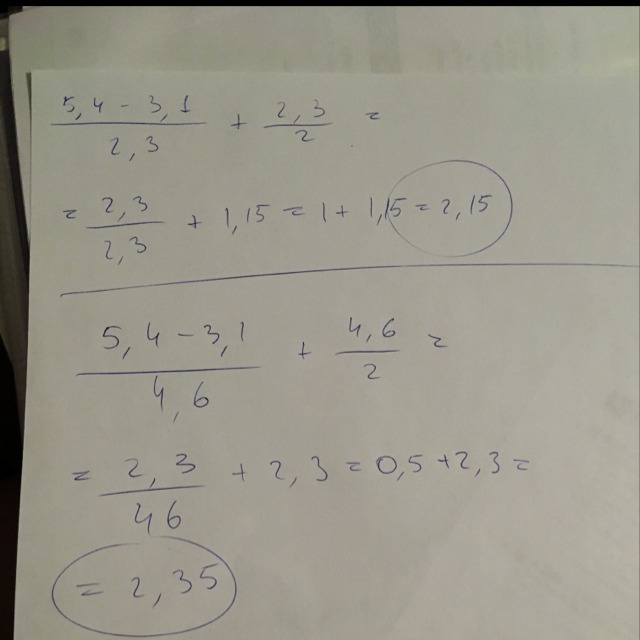 5,4 - 3,1 / 2,3 + 2,3 / 2 =
= 2,3 / 2,3 + 1,15 = 1 + 1,15 = 2,15
5,4 - 3,1 / 4,6 + 4,6 / 2 =
= 2,3 / 46 + 2,3 = 0,5 + 2,3 =
= 2,35